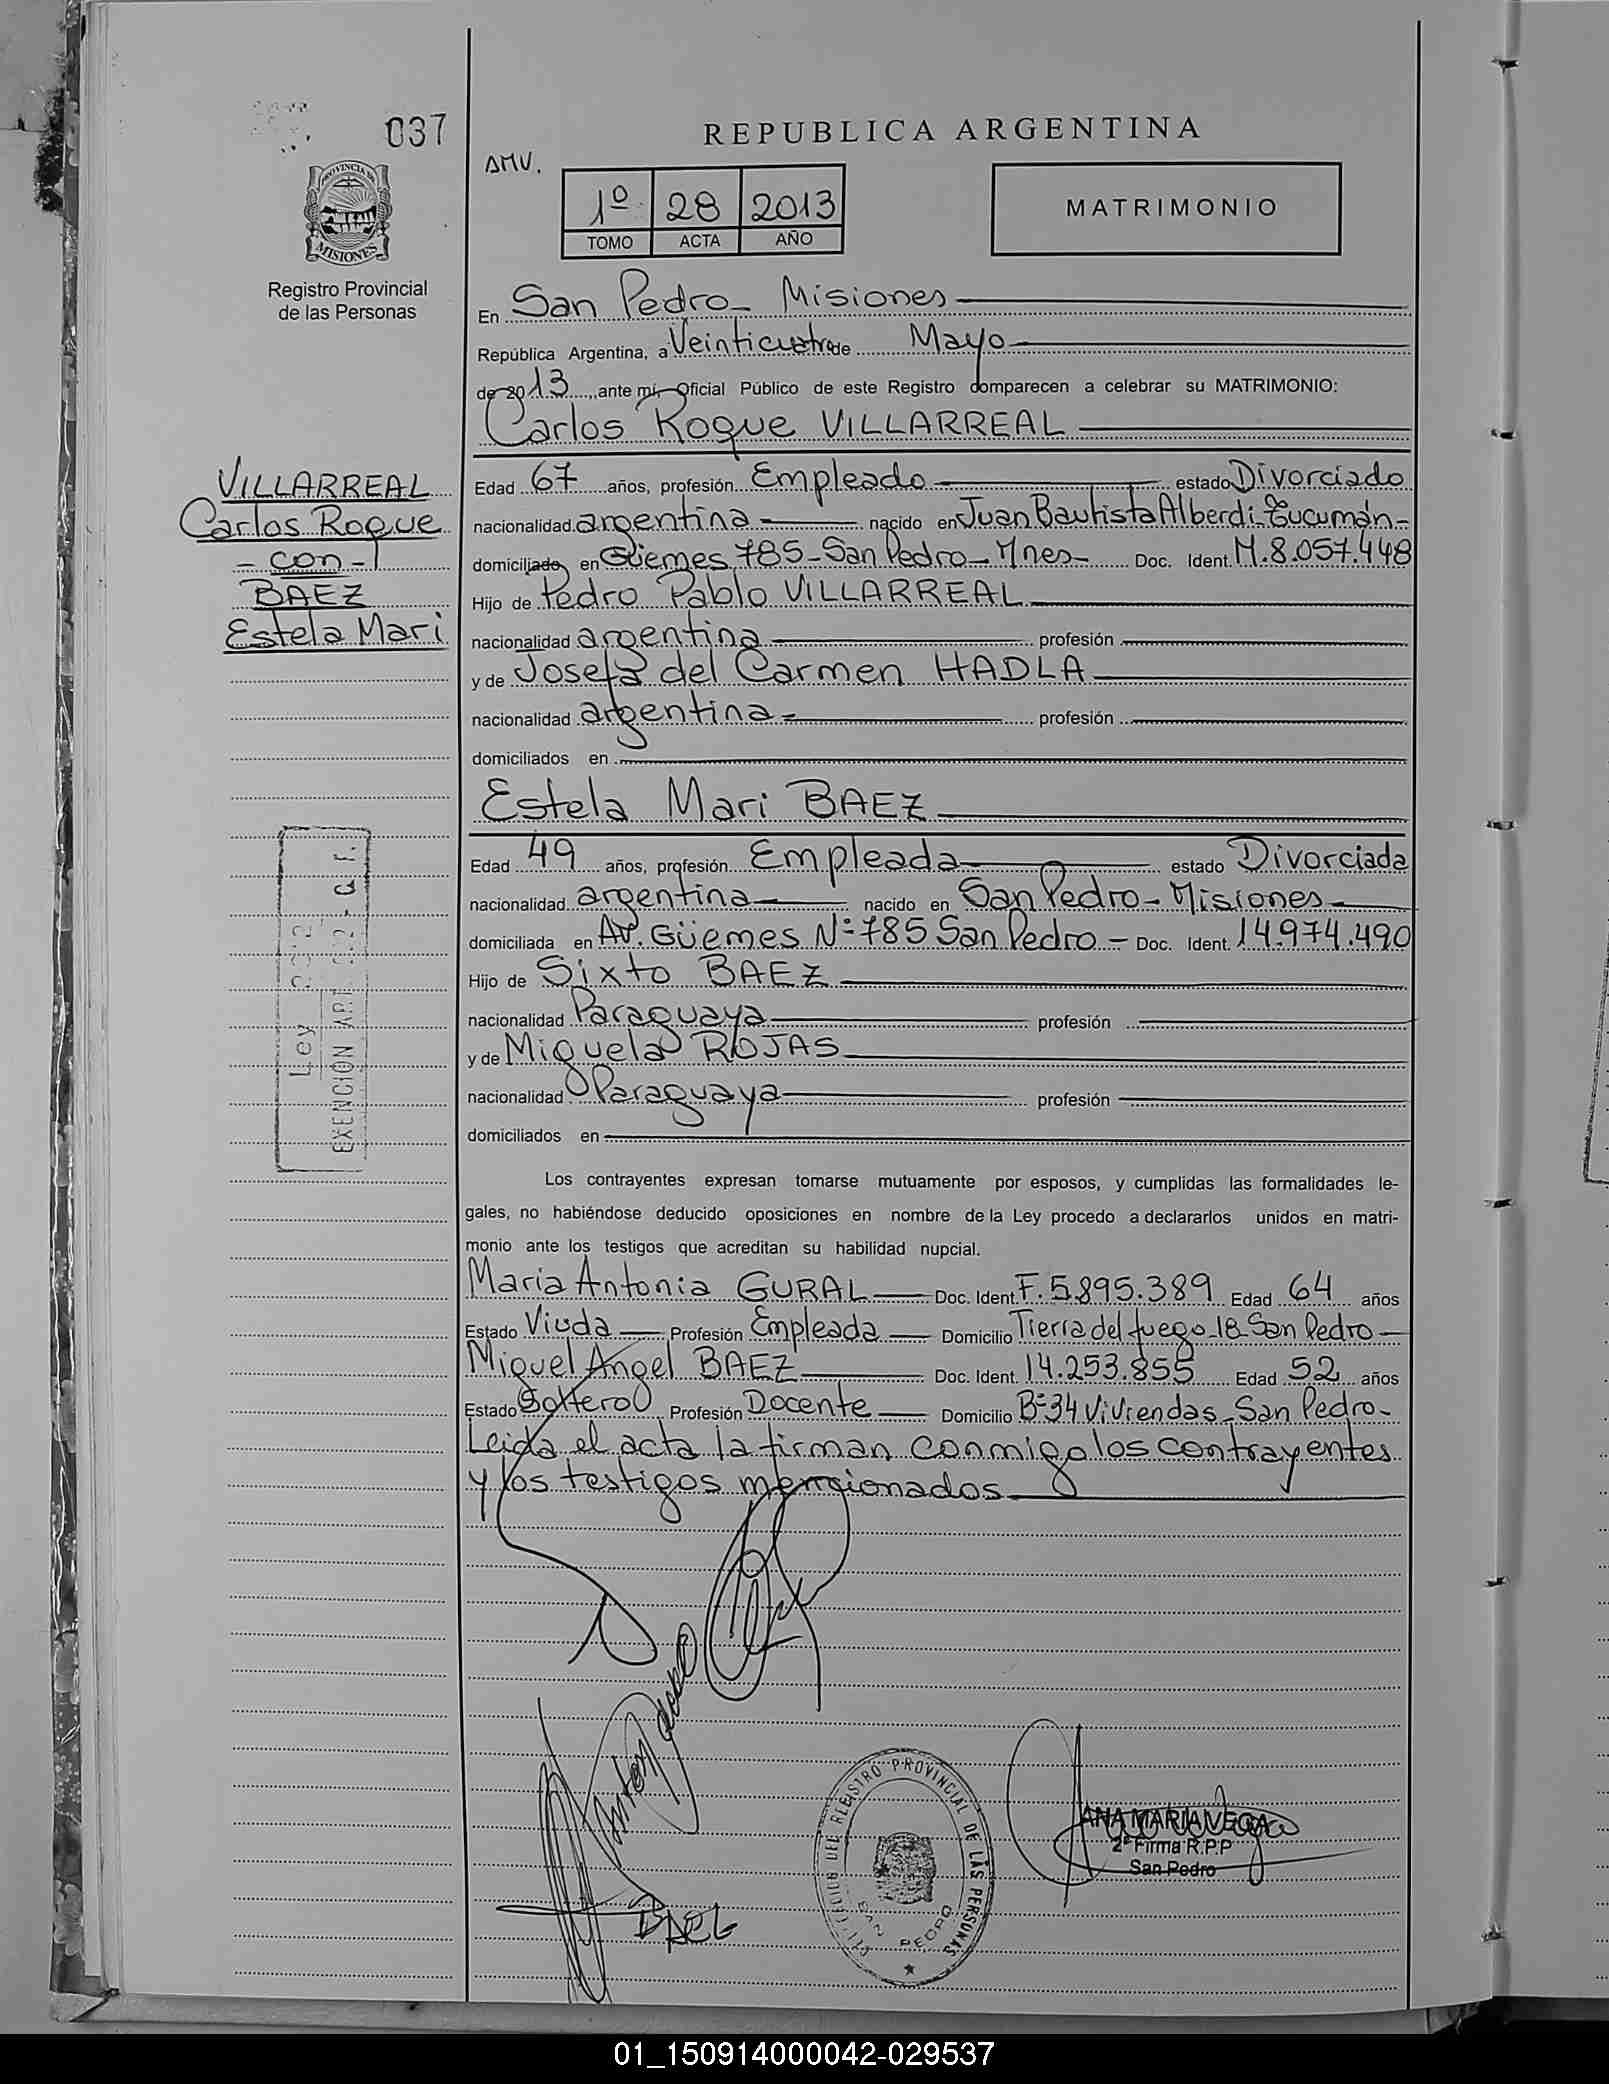 037
REPUBLICA ARGENTINA
AMV.
1º 28 2013
TOMO ACTA AÑO
MATRIMONIO
PROVINCIA DE
MISIONES
Registro Provincial
de las Personas
En San Pedro - Misiones
República Argentina, a Veinticuatro de Mayo
de 2013, ante mí, Oficial Público de este Registro comparecen a celebrar su MATRIMONIO:
Carlos Roque VILLARREAL
VILLARREAL
Carlos Roque
- con -
BAEZ
Estela Mari
Edad 67 años, profesión Empleado estado Divorciado
nacionalidad argentina nacido en Juan Bautista Alberdi - Tucumán -
domiciliado en Güemes 785 - San Pedro - Mnes - Doc. Ident. M.8.057.448
Hijo de Pedro Pablo VILLARREAL
nacionalidad argentina profesión
y de Josefa del Carmen HADLA
nacionalidad argentina - profesión
domiciliados en
Estela Mari BAEZ
Edad 49 años, profesión Empleada estado Divorciada
nacionalidad argentina nacido en San Pedro - Misiones
domiciliada en Av. Güemes Nº 785 San Pedro - Doc. Ident. 14.974.490
Hijo de Sixto BAEZ
nacionalidad Paraguaya profesión
y de Miguela ROJAS
nacionalidad Paraguaya profesión
domiciliados en
Ley
EXENCION ART.
Los contrayentes expresan tomarse mutuamente por esposos, y cumplidas las formalidades le-
gales, no habiéndose deducido oposiciones en nombre de la Ley procedo a declararlos unidos en matri-
monio ante los testigos que acreditan su habilidad nupcial.
Maria Antonia GURAL Doc. Ident. F.5.895.389 Edad 64 años
Estado Viuda Profesión Empleada Domicilio Tierra del fuego - 18 - San Pedro
Miguel Angel BAEZ Doc. Ident. 14.253.855 Edad 52 años
Estado Soltero Profesión Docente Domicilio Bº 34 Viviendas - San Pedro -
Leida el acta la firman conmigo los contrayentes
y los testigos mencionados
REGISTRO PROVINCIAL DE LAS PERSONAS
SAN PEDRO
ANA MARIA VEGA
2ª Firma R.P.P
San Pedro
BAEZ
01_150914000042-029537